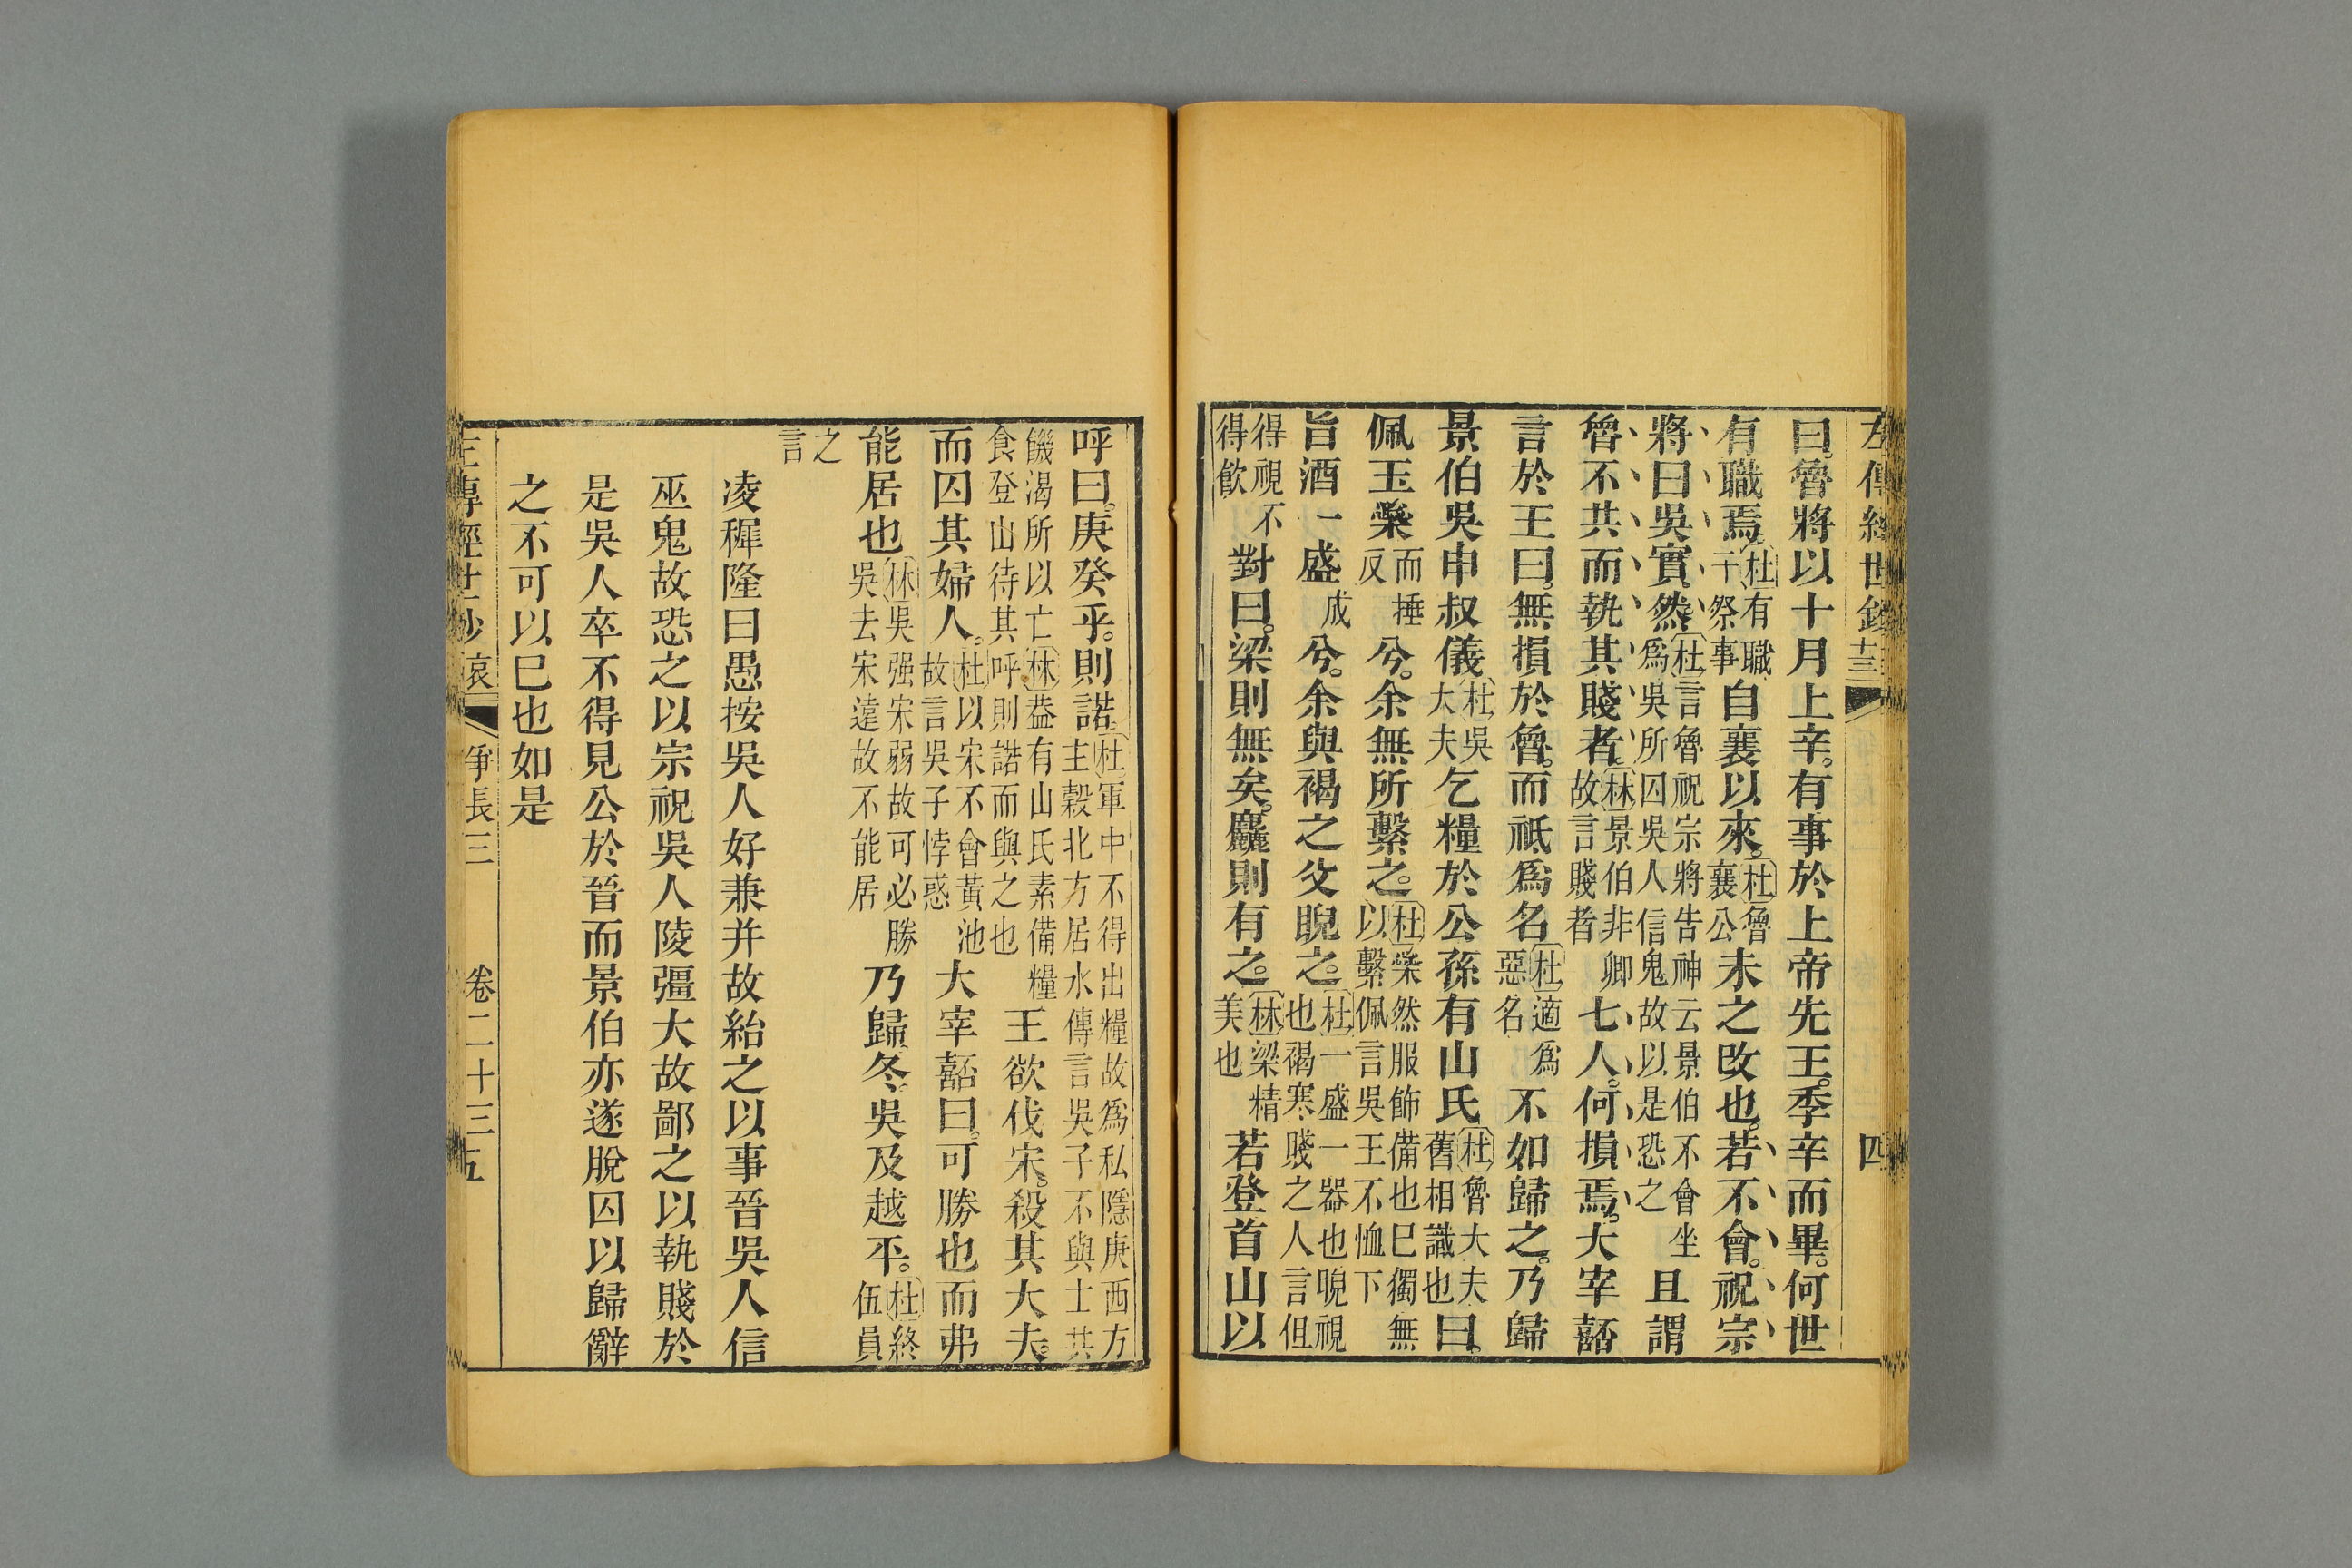 左傳經世鈔 十三 四
曰魯將以十月上辛。有事於上帝先王。季辛而畢。何世
有職焉。杜有職于祭事自襄以來。杜魯襄公未之改也。若不會。祝宗
將曰吳實然。杜言魯祝宗將告神云景伯不會坐爲吳所囚吳人信鬼故以是恐之且謂
魯不共而執其賤者。林景伯非卿故言賤者七人。何損焉。大宰嚭
言於王曰。無損於魯。而祗爲名。杜適爲惡名不如歸之。乃歸
景伯吳申叔儀杜吳大夫乞糧於公孫有山氏杜魯大夫舊相識也曰。
佩玉橤而捶反兮。余無所繫之。杜橤然服飾備也巳獨無以繫佩言吳王不恤下
旨酒一盛成兮。余與褐之父睨之。杜一盛一器也睨視也褐寒賤之人言但
得視不得飲對曰。梁則無矣。麤則有之。林梁精美也若登首山以
呼曰。庚癸乎。則諾。杜軍中不得出糧故爲私隱庚西方主穀北方居水傳言吳子不與士共
饑渴所以亡林葢有山氏素備糧食登山待其呼則諾而與之也王欲伐宋。殺其大夫。
而囚其婦人。杜以宋不會黃池故言吳子悖惑大宰嚭曰。可勝也而弗
能居也林吳强宋弱故可必勝吳去宋遠故不能居乃歸。冬。吳及越平。杜終伍員
之言
凌稺隆曰愚按吳人好兼并故紿之以事晉吳人信
巫鬼故恐之以宗祝吳人陵彊大故鄙之以執賤於
是吳人卒不得見公於晉而景伯亦遂脫囚以歸辭
之不可以巳也如是
左傳經世鈔 哀 爭長三 卷二十三 五